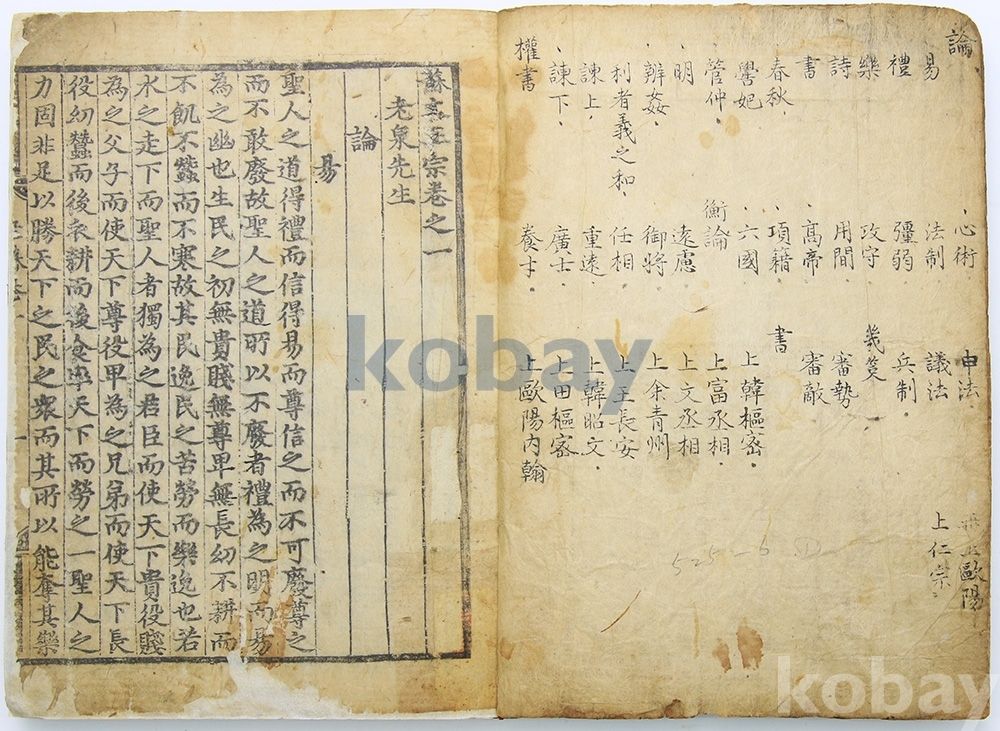 論
易
禮
樂
詩
書
春秋
嚳妃
管仲
明
辨姦
利者義之和
諫上
諫下
權書
心術
法制
彊弱
攻守
用間
高帝
項籍
六國
衡論
遠慮
御將
任相
重遠
廣士
養才
申法
議法
兵制
幾策
審勢
審敵
書
上韓樞密
上富丞相
上文丞相
上余青州
上王長安
上韓昭文
上田樞密
上歐陽内翰
再上歐陽
上仁宗
525-6
蘇文正宗卷之一
老泉先生
論
易
聖人之道得禮而信得易而尊信之而不可廢尊之
而不敢廢故聖人之道所以不廢者禮為之明而易
為之幽也生民之初無貴賤無尊卑無長幼不耕而
不飢不蠶而不寒故其民逸民之苦勞而樂逸也若
水之走下而聖人者獨為之君臣而使天下貴役賤
為之父子而使天下尊役卑為之兄弟而使天下長
役幼蠶而後衣耕而後食率天下而勞之一聖人之
力固非足以勝天下之民之衆而其所以能奪其樂
kobay
kobay